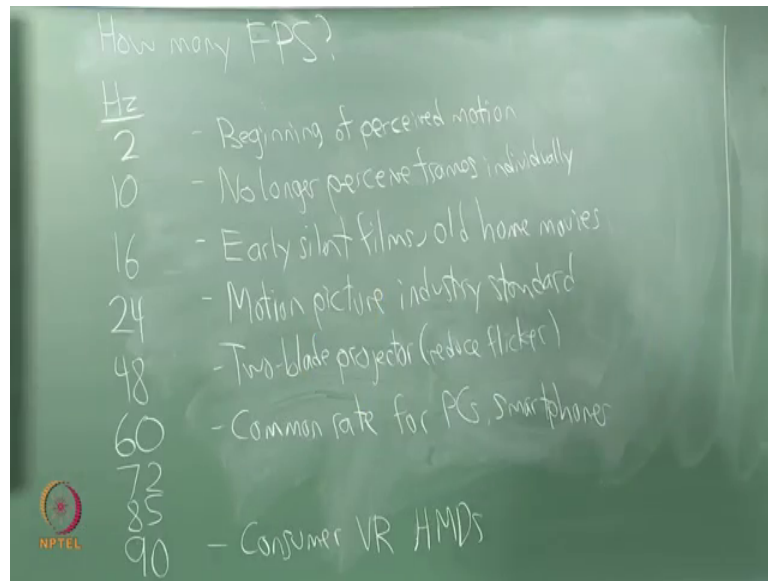 How many FPS?
Hz
2 - Beginning of perceived motion
10 - No longer perceive frames individually
16 - Early silent films, old home movies
24 - Motion picture industry standard
48 - Two-blade projector (reduce flicker)
60 - Common rate for PCs, smartphones
72
85
90 - Consumer VR HMDs
NPTEL